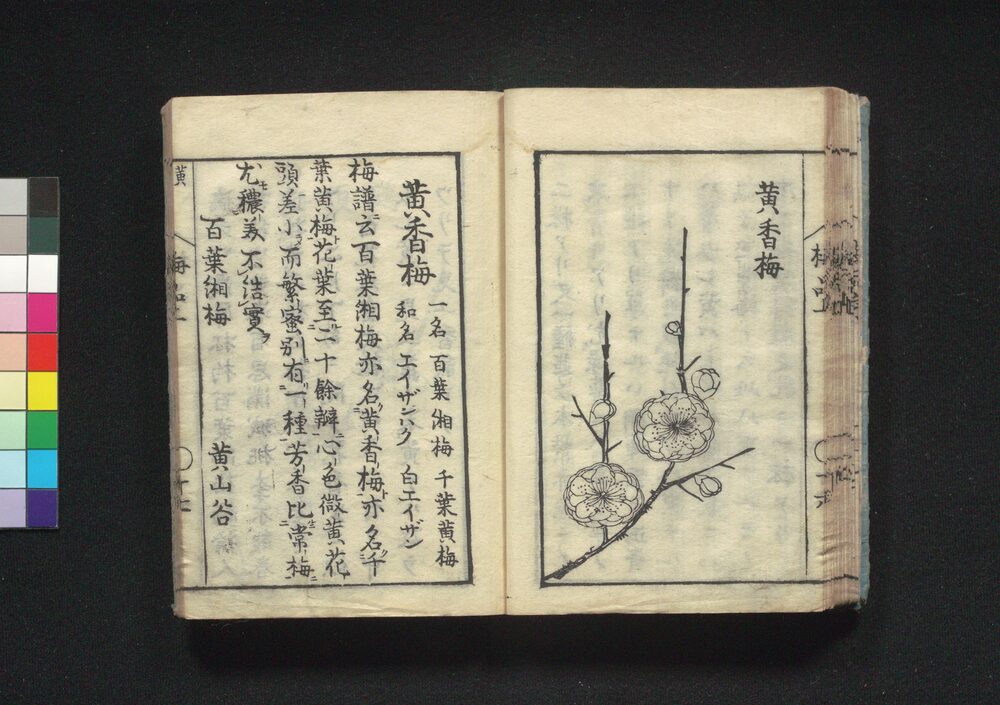 黄香梅
黄香梅
一名 百葉緗梅 千葉黄梅
和名 エイザンハク 白エイザン
梅譜云百葉緗梅亦名黄香梅亦名千
葉黄梅花葉至二十餘瓣心色微黄花
頭差小而繁密别有一種芳香比常梅
尤穠美不結實
百葉緗梅 黄山谷